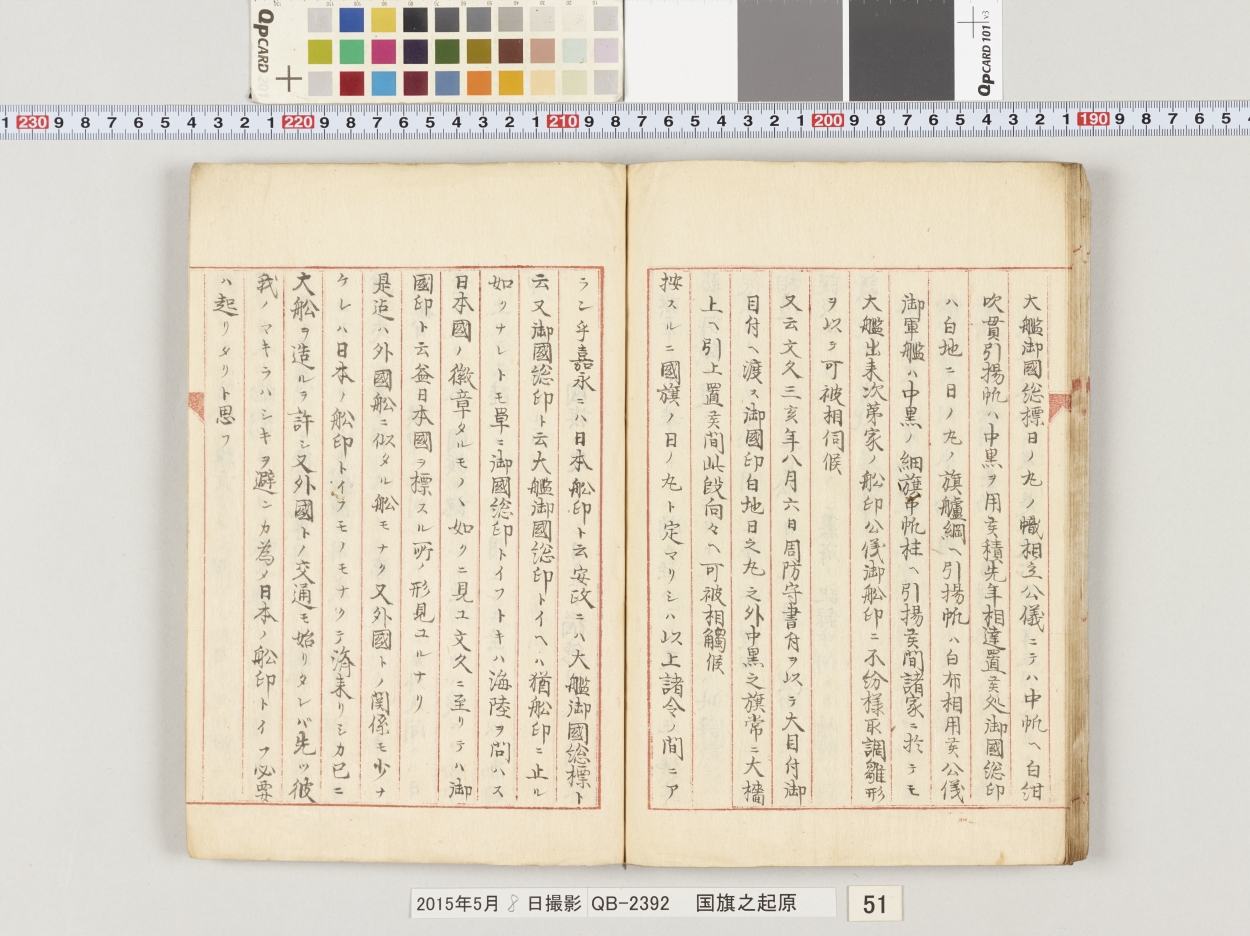 QPCARD 201
QPCARD 101 v3
1 230 9 8 7 6 5 4 3 2 1 220 9 8 7 6 5 4 3 2 1 210 9 8 7 6 5 4 3 2 1 200 9 8 7 6 5 4 3 2 1 190 9 8 7 6 5
大艦御國総標日ノ丸ノ幟相立公儀ニテハ中帆ヘ白紺
吹貫引揚帆ハ中黒ヲ用ヰ候積先年相達置候処御國総印
ハ白地ニ日ノ丸ノ旗艫綱ヘ引揚帆ハ白布相用候公儀
御軍艦ハ中黒ノ細旗中帆柱ヘ引揚候間諸家ニ於テモ
大艦出来次第家ノ船印公儀御船印ニ不紛様取調雛形
ヲ以テ可被相伺候
又云文久三亥年八月六日周防守書付ヲ以テ大目付御
目付ヘ渡ス御國印白地日之丸之外中黒之旗常ニ大檣
上ヘ引上置候間此段向々ヘ可被相觸候
按スルニ國旗ノ日ノ丸ト定マリシハ以上諸令ノ間ニア
ラン乎嘉永ニハ日本船印ト云安政ニハ大艦御國総標ト
云又御國総印ト云大艦御國総印トイヘハ猶船印ニ止ル
如クナレトモ単ニ御國総印トイフトキハ海陸ヲ問ハス
日本國ノ徽章タルモノヽ如クニ見ユ文久ニ至リテハ御
國印ト云益日本國ヲ標スル所ノ形見ユルナリ
是迄ハ外國船ニ似タル船モナク又外國トノ関係モ少ナ
ケレハ日本ノ船印トイフモノモナクテ済来リシカ已ニ
大船ヲ造ルヲ許シ又外國トノ交通モ始リタレバ先ツ彼
我ノマキラハシキヲ避ンカ為メ日本ノ船印トイフ必要
ハ起リタリト思フ
2015年5月 8 日撮影 QB-2392 国旗之起原
51